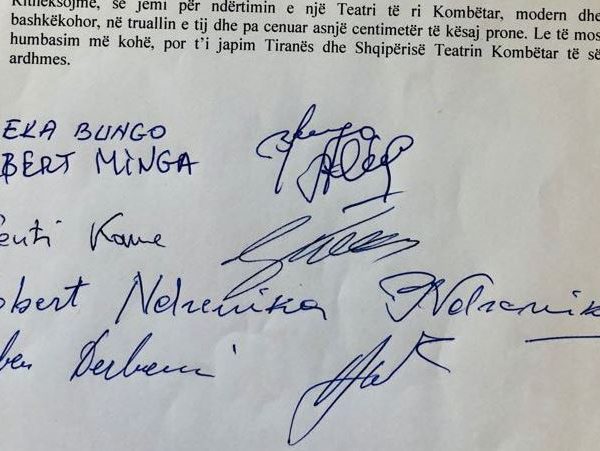 Ritheksojmë, se jemi për ndërtimin e një Teatri të ri Kombëtar, modern dhe
bashkëkohor, në truallin e tij dhe pa cenuar asnjë centimetër të kësaj prone. Le të mos
humbasim më kohë, por t’i japim Tiranës dhe Shqipërisë Teatrin Kombëtar të së
ardhmes.
EKA BUNGO
BERT MINGA
Kame
obert Ndrenika Ndrenik